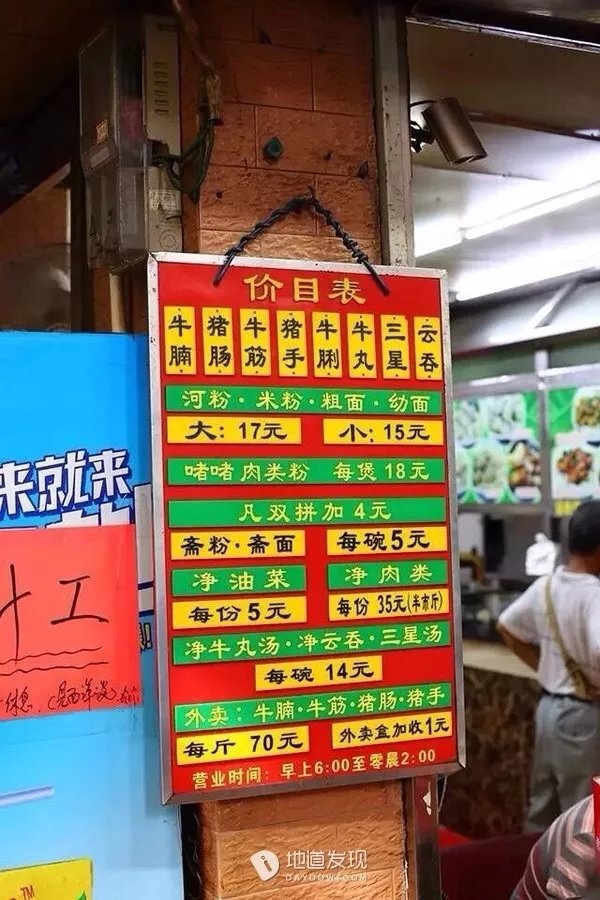 价目表
牛腩 猪肠 牛筋 猪手 牛脷 牛丸 三星 云吞
河粉·米粉·粗面·幼面
大:17元 小:15元
啫啫肉类粉 每煲18元
凡双拼加4元
斋粉·斋面 每碗5元
净油菜 净肉类
每份5元 每份35元(半市斤)
净牛丸汤·净云吞·三星汤
每碗14元
外卖:牛腩·牛筋·猪肠·猪手
每斤70元 外卖盒加收1元
营业时间:早上6:00至零晨2:00
来就来
工
休息
TM
地道发现
DAYDOW7.COM